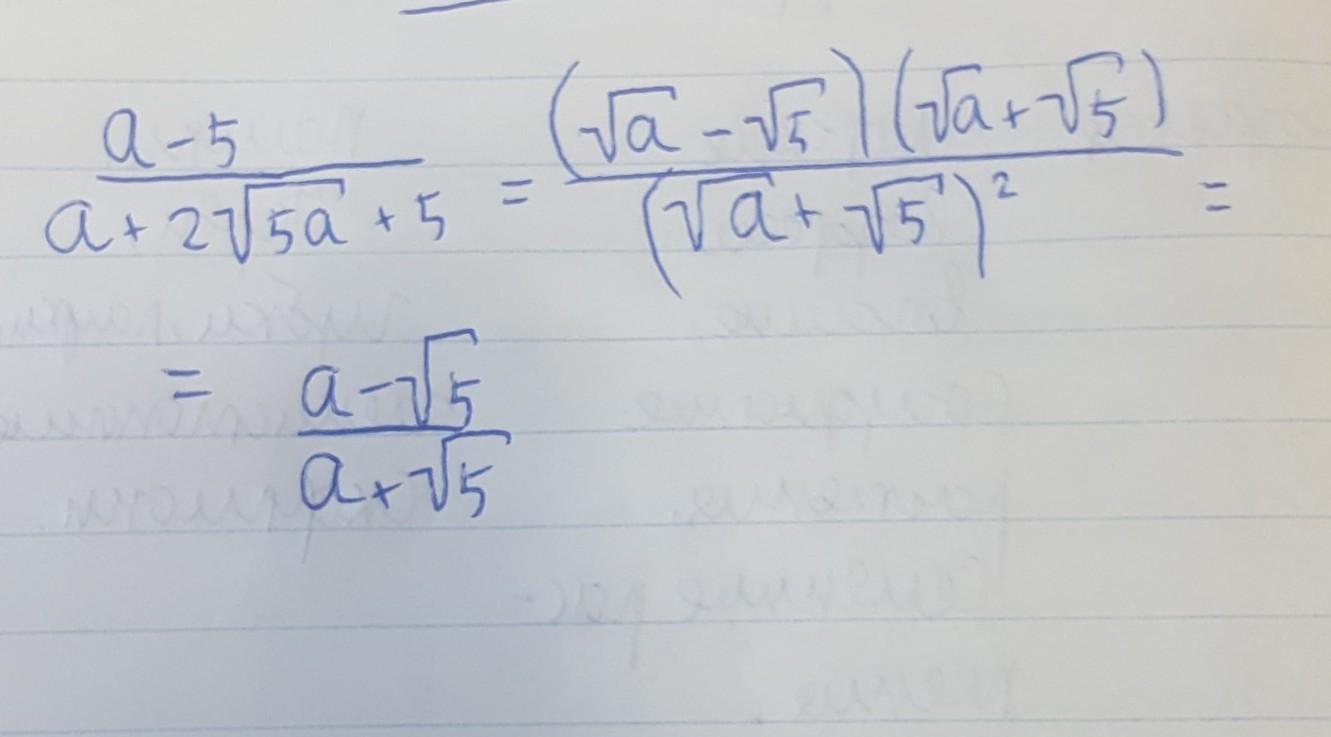 (a-5)/(a+2√(5a)+5) = ((√a-√5)(√a+√5))/((√a+√5)²) =
= (a-√5)/(a+√5)